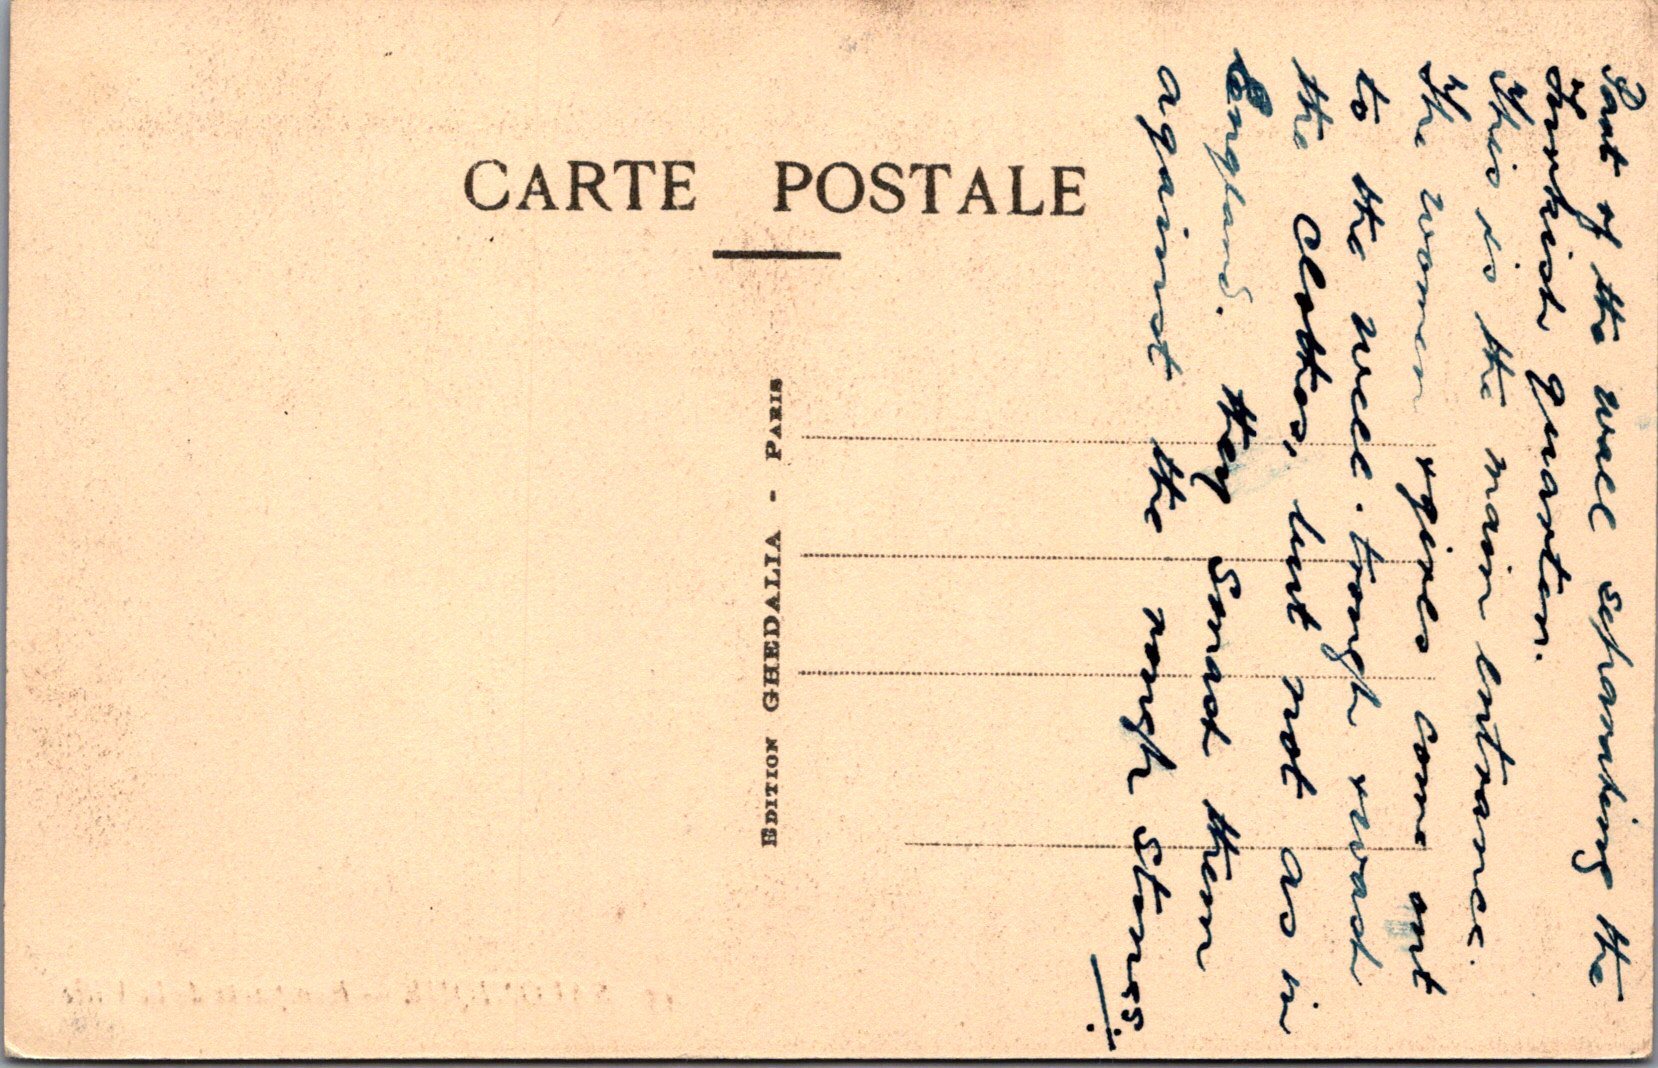 CARTE POSTALE
EDITION GHEDALIA - PARIS
Part of the wall separating the
Turkish quarter.
This is the main entrance.
The women & girls come out
to the well. trough & wash
the clothes, but not as in
England. they smash them
against the rough stones.